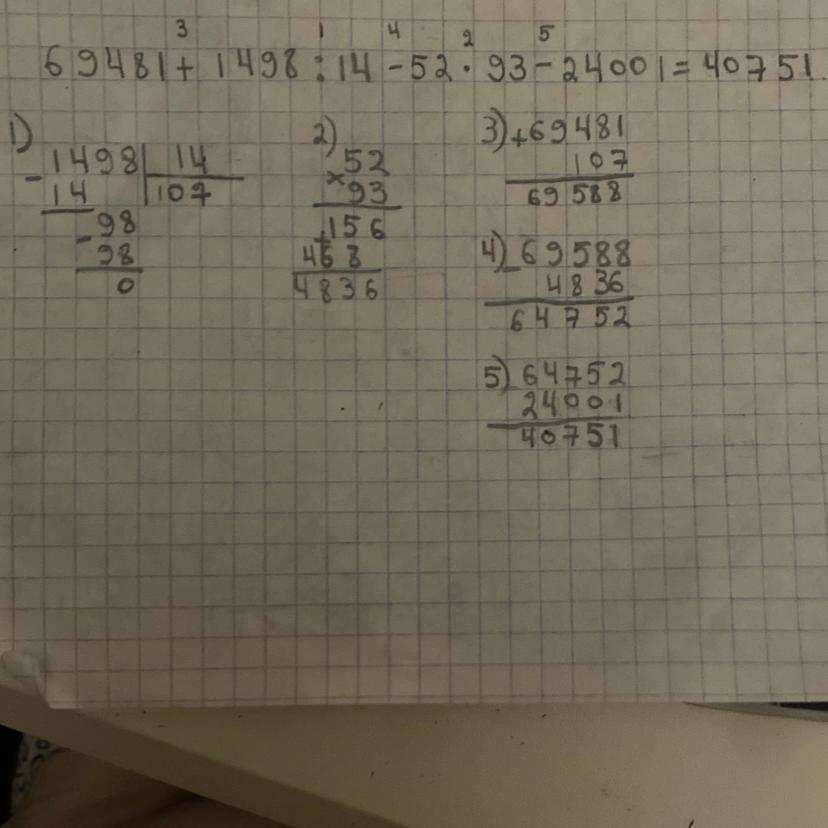 3 1 4 2 5
69481 + 1498 : 14 - 52 · 93 - 24001 = 40751.
1)
- 1498 | 14
14 | 107
- 98
98
0
2)
× 52
93
+ 156
468
4836
3) + 69481
107
69588
4) - 69588
4836
64752
5) - 64752
24001
40751